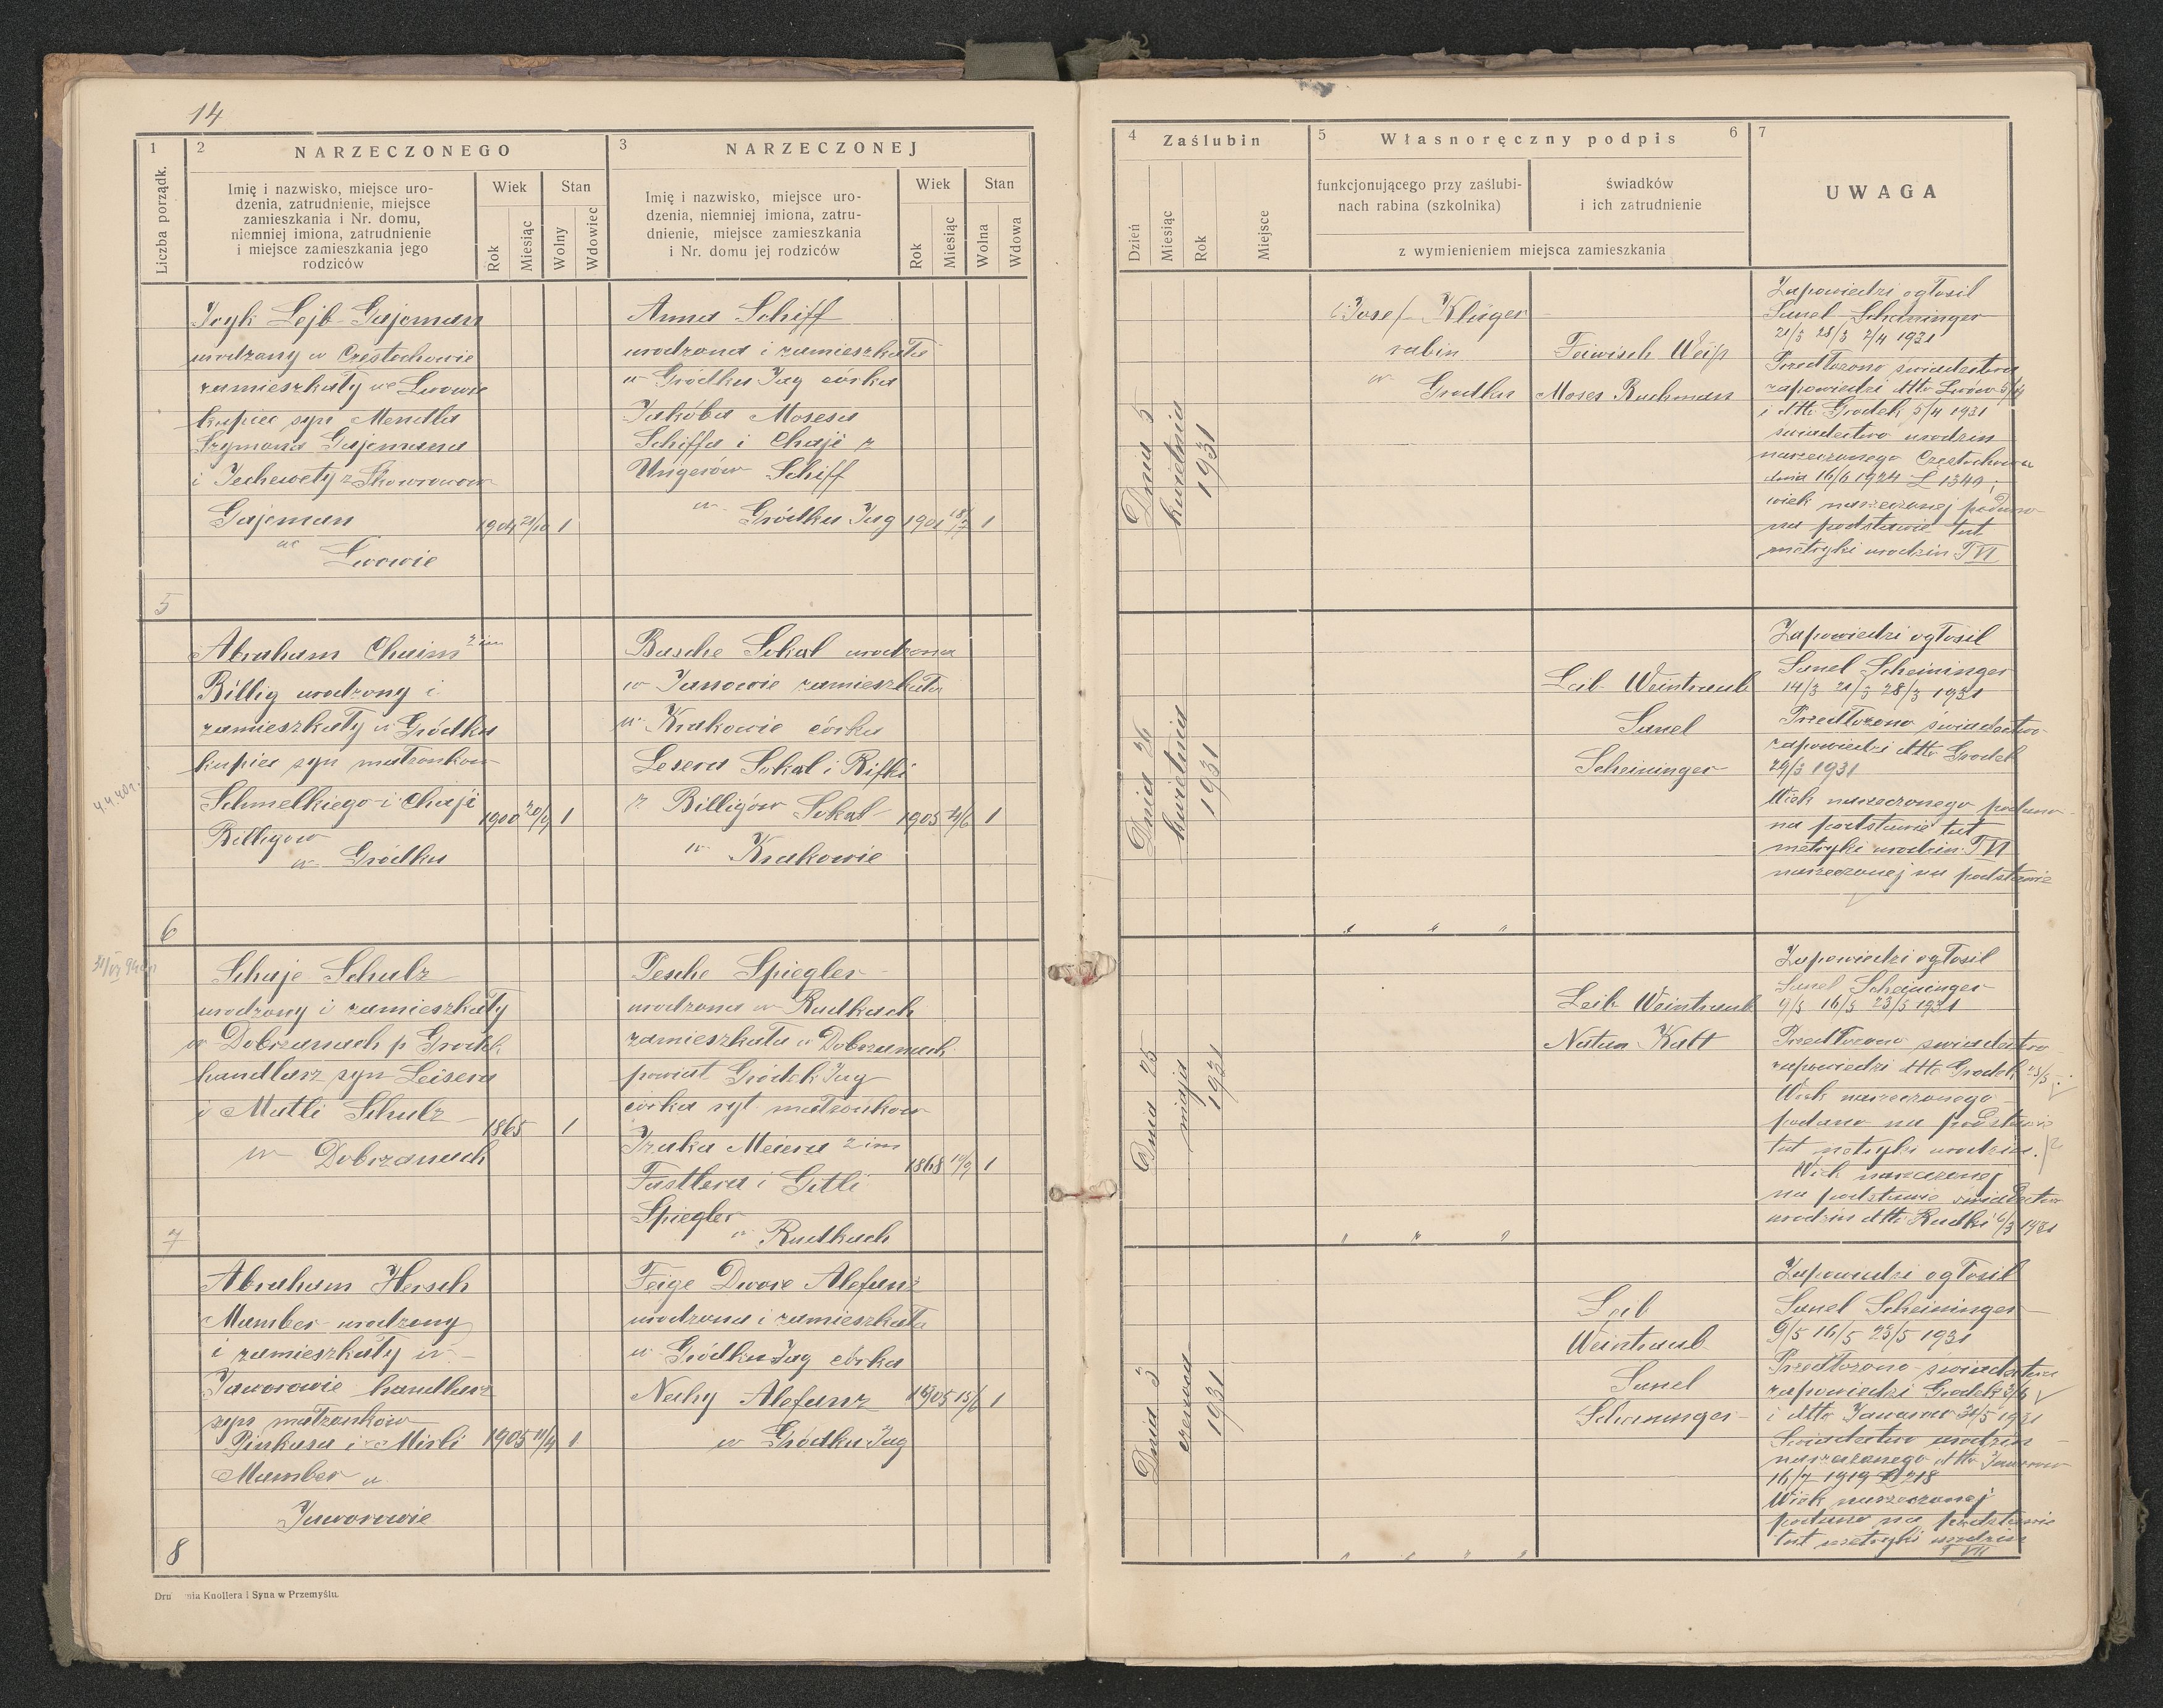 14
1
2
NARZECZONEGO
3
NARZECZONEJ
Liczba porządk.
Imię i nazwisko, miejsce uro-
dzenia, zatrudnienie, miejsce
zamieszkania i Nr. domu,
niemniej imiona, zatrudnienie
i miejsce zamieszkania jego
rodziców
Wiek
Stan
Rok
Miesiąc
Wolny
Wdowiec
Imię i nazwisko, miejsce uro-
dzenia, niemniej imiona, zatru-
dnienie, miejsce zamieszkania
i Nr. domu jej rodziców
Wiek
Stan
Rok
Miesiąc
Wolna
Wdowa
Icyk Lejb Gajcman
urodzony w Częstochowie
zamieszkały we Lwowie
kupiec syn Mendla
Szymona Gajcmana
i Jechewety z
Gajcman 1904 21/10 1
we
Lwowie
5
Anna Schiff
urodzona i zamieszkała
w Gródku Jag córka
Jakóba Mosesa
Schiffa i Chaji z
Ungerów Schiff
w Gródku Jag 1901 18/12 1
Abraham Chaim 2 im
Billig urodzony i
zamieszkały w Gródku
kupiec syn małżonków
Schmelkiego i Chaji 1900 20/9 1
Billigów
w Gródku
4.4.40r.
6
Basche Sokal urodzona
w Janowie zamieszkała
w Krakowie córka
Lesera Sokal i Rifki
z Billigów Sokal 1903 1
w Krakowie
Schaje Schulz
urodzony i zamieszkały
w Dobrzanach p Gródek
handlarz syn Leisera
i Matli Schulz 1865 1
w Dobrzanach
7
Pesche Spiegler
urodzona w Rudkach
zamieszkała w Dobrzanach
powiat Gródek Jag
córka ryt małżonków
Izaka Meiera 2 im 1868 1
i Gitli
Spiegler
w Rudkach
Abraham Hersch
Mamber urodzony
i zamieszkały w
Jaworowie handlarz
syn małżonków
Pinkasa i Mirli 1905 1
Mamber w
Jaworowie
8
Feige Dwore Alefanz
urodzona i zamieszkała
w Gródku Jag córka
Nachy Alefanz 1905 15/6 1
w Gródku Jag
Drukarnia Knollera i Syna w Przemyślu.
4
Zaślubin
5
Własnoręczny podpis
6
7
Dzień
Miesiąc
Rok
Miejsce
funkcjonującego przy zaślubi-
nach rabina (szkolnika)
świadków
i ich zatrudnienie
z wymienieniem miejsca zamieszkania
UWAGA
Dnia 5
kwietnia
1931
Josef Klüger
rabin
w
Gródku
Feiwisch Weiß
Moses Ruchman
Zapowiedzi ogłosił
Sanel Scheininger
21/3 28/3 2/4 1931
Przedłożono świadectwa
zapowiedzi dtto Lwów 5/4
i dtto Gródek 5/4 1931
świadectwo urodzin
narzeczonego Częstochowa
dnia 16/6 1924 L 1340;
wiek narzeczonej podano
na podstawie tut
metryki urodzin T VI
Dnia 26
kwietnia
1931
Leib Weintraub
Sanel
Scheininger
Zapowiedzi ogłosił
Sanel Scheininger
14/3 21/3 28/3 1931
Przedłożono świadectwo
zapowiedzi dtto Gródek
29/3 1931
Wiek narzeczonego podano
na podstawie tut
metryki urodzin T VI
narzeczonej na podstawie
" " "
Dnia 25
maja
1931
Leib Weintraub
Natan Katt
Zapowiedzi ogłosił
Sanel Scheininger
9/5 16/5 23/5 1931
Przedłożono świadectwo
zapowiedzi dtto Gródek 25/5
Wiek narzeczonego
podano na podstawie
tut metryki urodzin.
Wiek narzeczonej
na podstawie świadectwa
urodzin dtto Rudki 6/3 1931
" " "
Dnia 3
czerwca
1931
Leib
Weintraub
Sanel
Scheininger
Zapowiedzi ogłosił
Sanel Scheininger
9/5 16/5 23/5 1931
Przedłożono świadectwa
zapowiedzi Gródek 3/6
i dtto Jaworów 31/5 1931
Świadectwo urodzin
narzeczonego dtto Jaworów
16/7 1919 218
Wiek narzeczonej
podano na podstawie
tut metryki urodzin
T VII
" " " "